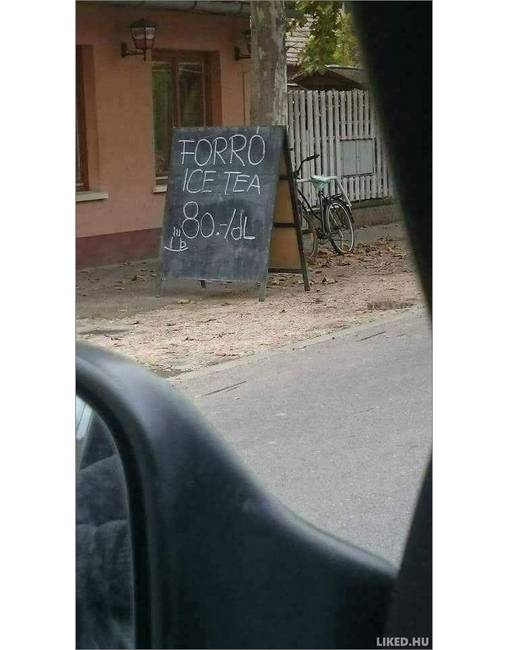 FORRÓ
ICE TEA
80.-/dL
LIKED.HU